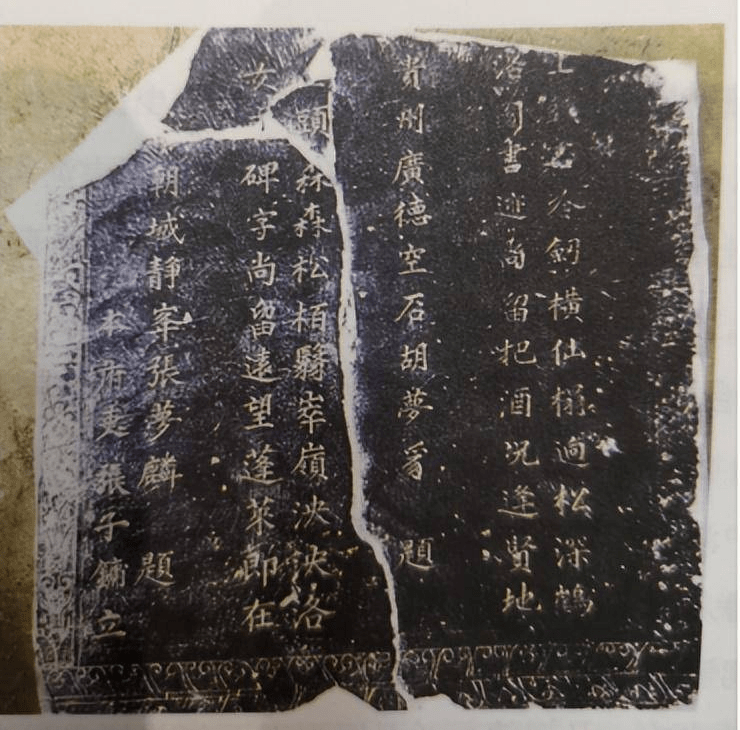 劒橫仙榻迥松深鶴
書迹尚留把酒况逢賢地
貴州廣德空石胡夢豸 題
頭森森松栢翳峯嶺泱泱洛
女 碑字尚留遠望蓬萊郎在
朝城靜峯張夢麟 題
本府吏張子鏞立